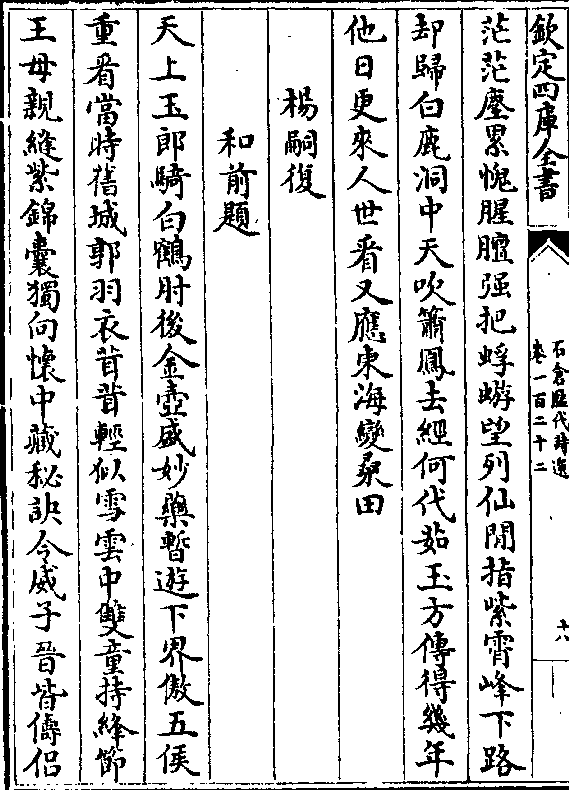 欽定四庫全書
石倉歷代詩選
卷一百二十二
十八
茫茫塵累愧腥膻强把蜉蝣望列仙閒指紫霄峰下路
却歸白鹿洞中天吹簫鳳去經何代茹玉方傳得幾年
他日更來人世看又應東海變桑田
楊嗣復
和前題
天上玉郎騎白鶴肘後金壺盛妙藥暫遊下界傲五侯
重看當時舊城郭羽衣茸茸輕似雪雲中雙童持絳節
王母親縫紫錦囊獨向懷中藏秘訣令威子晉皆儔侣